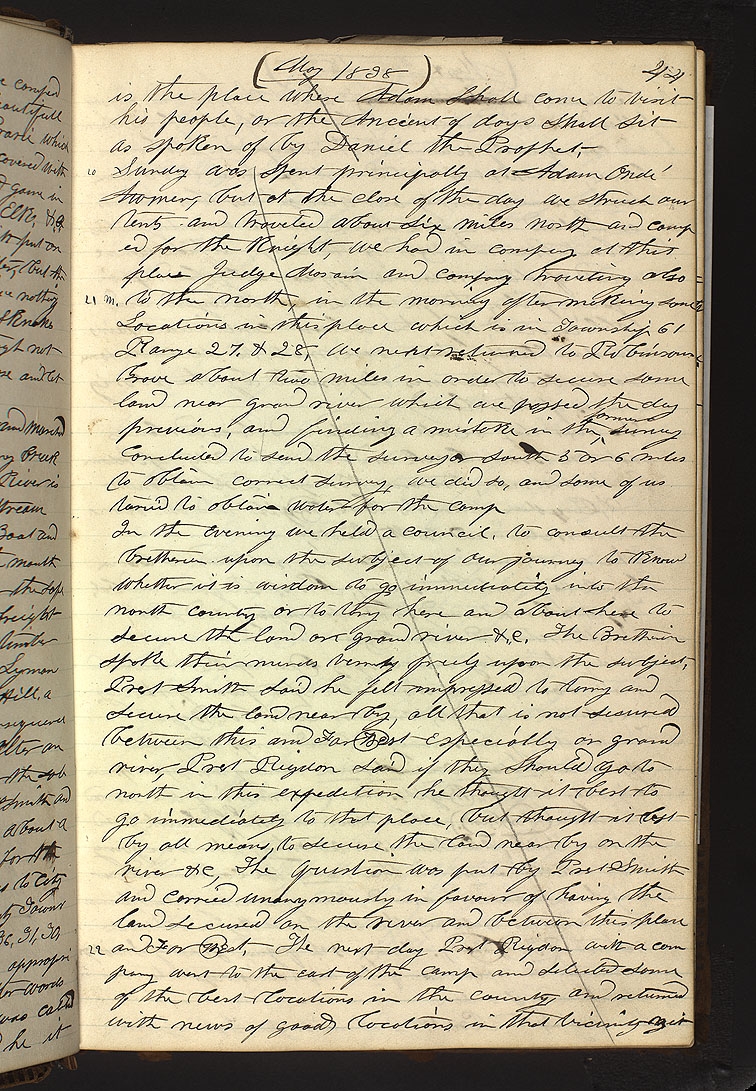 (May 1838)
44
is the place where Adam shall come to visit
his people, or the Ancient of days shall sit
as spoken of by Daniel the Prophet,
20 Sunday was spent principally at Adam Ondi
Awmen, but at the close of the day we struck our
tents and traveled about six miles north and camp
ed for the Knight, we had in company at this
place Judge Morain and company traveling also
21 m. to the north, in the morning after making some
Locations in this place which is in Township 61
Range 27. & 28, we next returned to Robinsons
Grove about two miles in order to secure some
land near grand river which we passed the day
previous, and finding a mistake in the former survey
Concluded to send the surveyor south 5 or 6 miles
to obtain correct survey, we did so, and some of us
taried to obtain water for the camp
In the evening we held a council, to consult the
bretheren upon the subject of our journey to know
whether it is wisdom to go immediately into the
north country or to tarry here and about here to
secure the land on grand river &c. The Bretheren
spoke their minds verry freely upon the subject,
Prest Smith said he felt impressed to tarry and
secure the land near by, all that is not secured
between this and Far West especially on grand
river, Prest Rigdon said if they should go to
north in this expedition he thought it best to
go immediately to that place, but thought it best
by all means, to secure the land near by on the
river &c, The question was put by Prest Smith
and carried unanymously in favour of having the
land secured on the river and between this place
22 and Far West, The next day Prest Rigdon with a com
pany went to the east of the camp and selected some
of the best locations in the county, and returned
with news of good locations in that vicinity